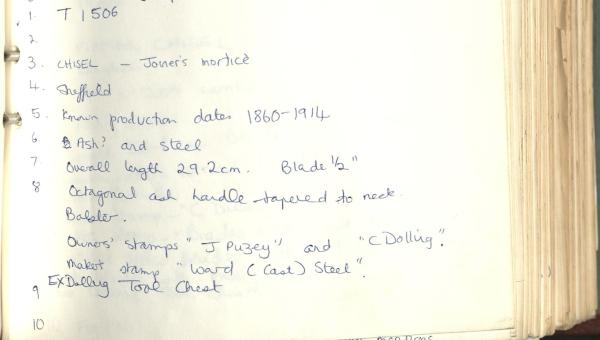 1. T 1506
2.
3. CHISEL - Joiner's mortice
4. Sheffield
5. Known production dates 1860-1914
6 Ash? and steel
7. Overall length 29.2cm. Blade 1/2"
8 Octagonal ash handle tapered to neck.
Balster.
Owners' stamps "J Puzey" and "C Dolling".
Makers stamp "Ward (Cast) Steel".
9 Ex Dolling Tool Chest
10